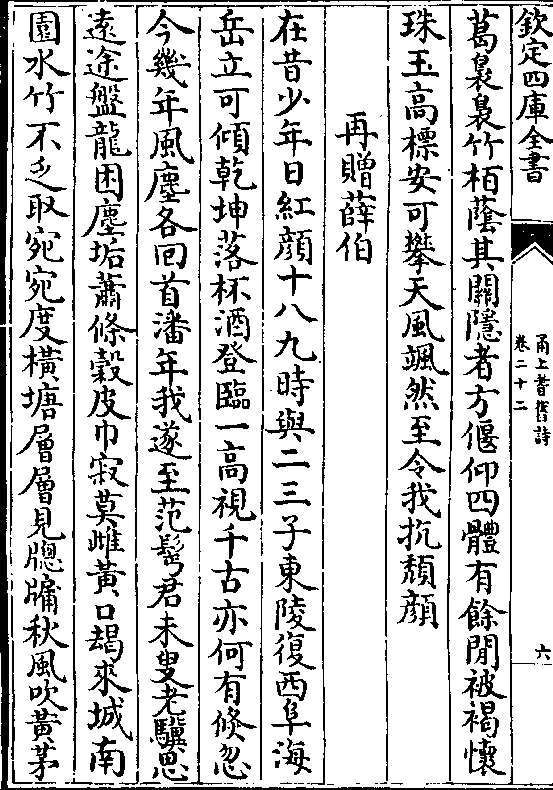 欽定四庫全書
甬上耆舊詩
卷二十二
六
葛裊裊竹栢蔭其關隱者方偃仰四體有餘閒被褐懷
珠玉高標安可攀天風颯然至令我抗頽顔
再贈薛伯
在昔少年日紅顔十八九時與二三子東陵復西阜海
岳立可傾乾坤落杯酒登臨一高視千古亦何有倐忽
今幾年風塵各回首潘年我遂至范髩君未叟老驥思
遠途盤龍困塵垢蕭條穀皮巾寂莫雌黃口朅來城南
園水竹不乏取宛宛度橫塘層層見牎牖秋風吹黃茅